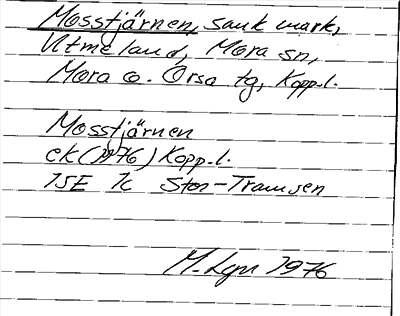 Mosstjärnen, sank mark,
Utmeland, Mora sn,
Mora o. Orsa tg, Kopp.l.
Mosstjärnen
ek (1976) Kopp.l.
15E 7c Stor-Tramsen
M. Lgn 1976